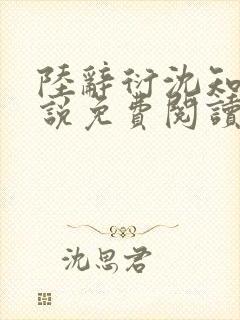 陸辭衍沈知
說免費閱讀
沈思君